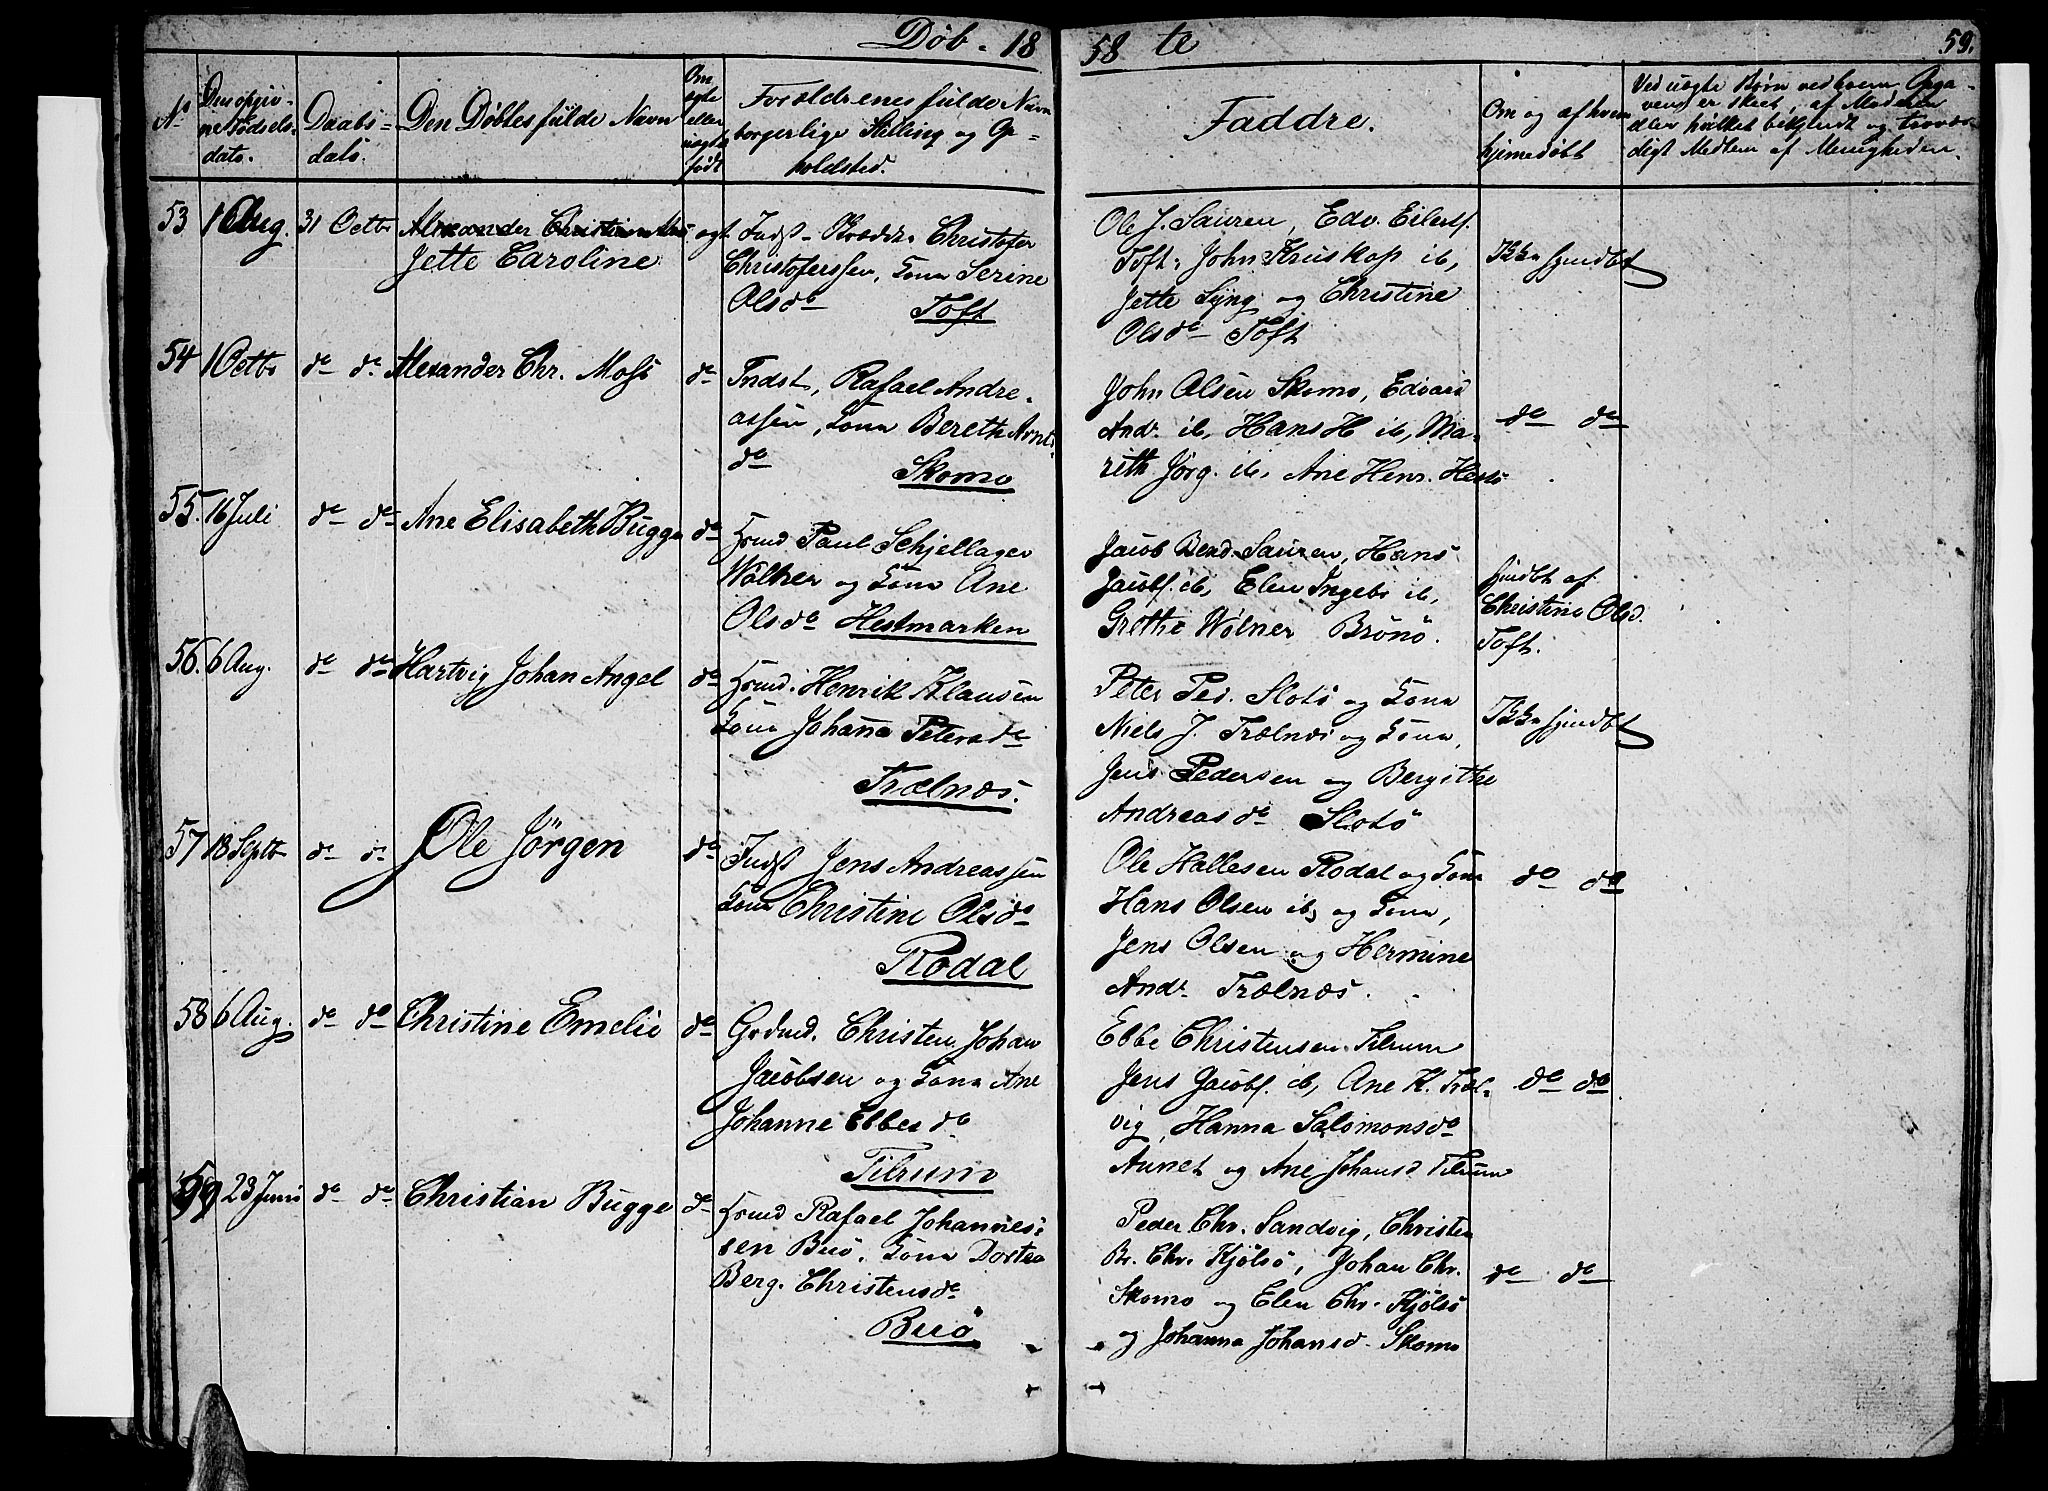 Døb. 1858 te
59.
No
Den opgiv-
ne Fødsels-
dato.
Daabs-
dato.
Den Døbtes fulde Navn
Om
ægte
eller
uægte
født
Forældrenes fulde Navn
borgerlige Stilling og Op-
holdsted.
Faddre.
Om og af hvem
hjemedøbt
Ved uægte Børn ved hvem Opga-
ven er skeet, af Moderen
eller hvilket bekjendt og trovær-
digt Medlem af Menigheden.
53 1 Aug. 31 Octbr Alexander Christian Mos ægt Indst. Christofer
Jette Caroline
Christoferssen, Kone Serine
Olsdr Toft
Ole J. Sauren, Edv. Eilerts.
Toft, John Kruskop ib,
Jette Lyng og Christine
Olsdr Toft
Ikke hjmdbt
54 1 Octbr do do Alexander Chr. Moss do Indst, Rafael Andre-
assen, Kone Bereth Arnts-
dr Skomo
John Olsen Skomo, Edvard
Andr. ib, Hans H ib, Ma-
reth Jørg. ib, Ane Henr. Hestø
do do
55. 16 Juli do do Ane Elisabeth Bugge do Grmd Paul Schjellager
Wølner og Kone Ane
Olsdr Hestmarken
Jacob Bend. Sauren, Hans
Jacobs. ib, Elen Ingebr ib,
Grethe Wølner Brønø.
hjmdbt af
Christine Olsd.
Toft.
56. 6 Aug. do do Hartvig Johan Angel do Grmd. Henrik Klausen
Kone Johanna Petersdr
Trælnæs.
Peter Ped. Slotø og Kone
Niels J. Trælnæs og Kone,
Jens Pedersen og Bergithe
Andreasdr Slotø
Ikke hjmdbt
57 18 Septb do do Ole Jørgen do Indst Jens Andreassen
Kone Christine Olsdr
Rodal
Ole Hallesen Rodal og Kone
Hans Olsen ib, og Kone,
Jens Olsen og Hermine
Andr. Trælnæs.
do do
58 6 Aug. do do Christine Emelie do Grdmd. Christen Johan
Jacobsen og Kone Ane
Johanne Ebbesdr
Tilrum
Ebbe Christensen Tilrum
Jens Jacobs. ib, Ane K. Træl-
vig, Hanna Salomonsdr
Aunet og Ane Johansd Tilrum
do do
59 23 Juni do do Christian Bugge do Grmd Rafael Johannes-
sen Buø, Kone Dortea
Berg. Christensdr
Buø
Peder Chr. Sandvig, Christen
Br. Chr. Kjølsø, Johan Chr.
Skomo og Elen Chr. Kjølsø
og Johanna Johansd. Skomo
do do